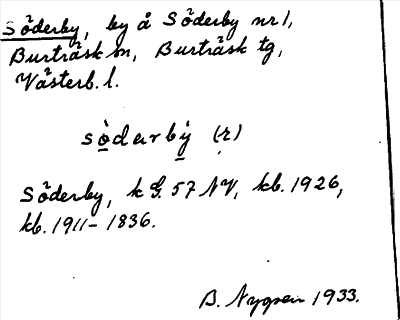 Söderby, by å Söderby nr 1,
Burträsk sn, Burträsk tg,
Västerb. l.
sòdarbý (r)
Söderby, k G. 57 NV, kb. 1926,
kb. 1911-1836.
B. Nygren 1933.